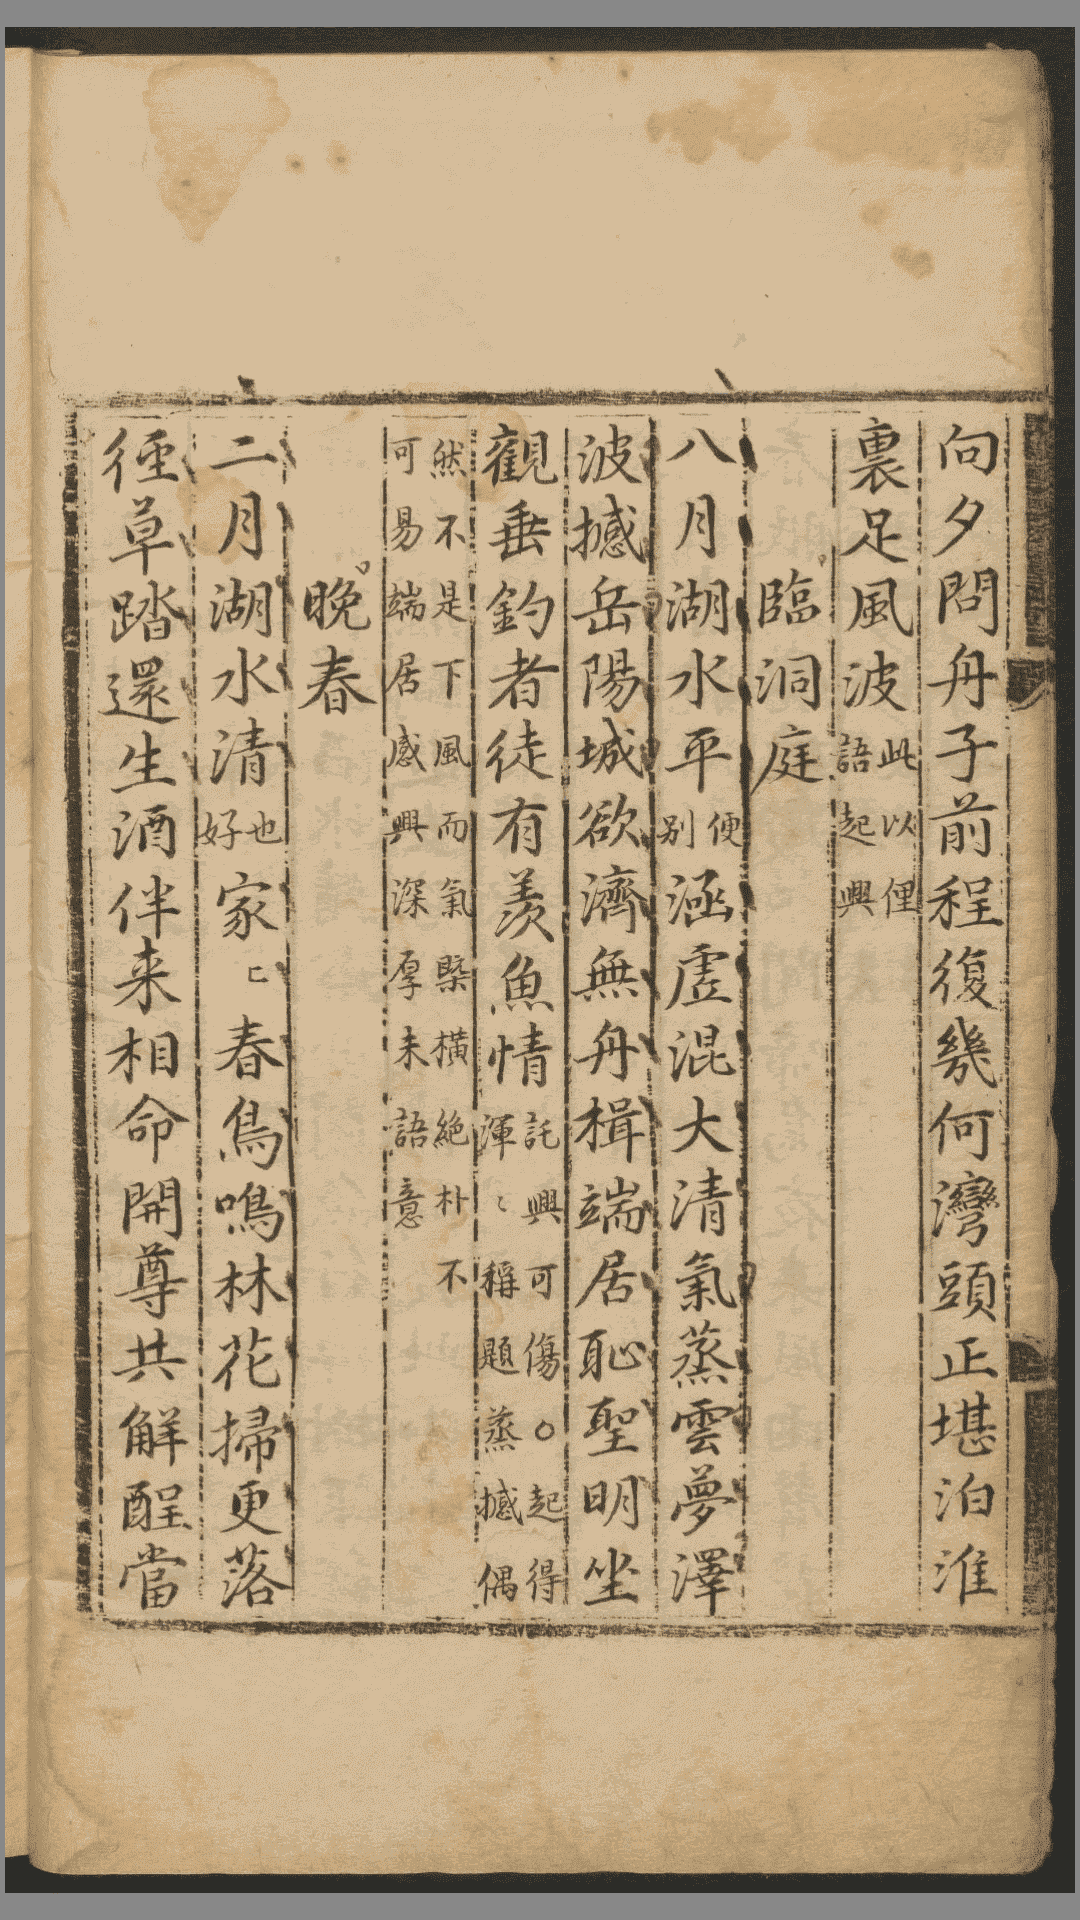 向夕問舟子前程復幾何灣頭正堪泊淮
裏足風波此以俚語起興
臨洞庭
八月湖水平便別涵虛混大清氣蒸雲夢澤
波撼岳陽城欲濟無舟楫端居恥聖明坐
觀垂釣者徒有羨魚情託興可傷○起得渾〻稱題蒸撼偶
然不是下風而氣槩橫絶朴不可易端居感興深厚未語意
晚春
二月湖水清也好家〻春鳥鳴林花掃更落
徑草踏還生酒伴来相命開尊共解酲當